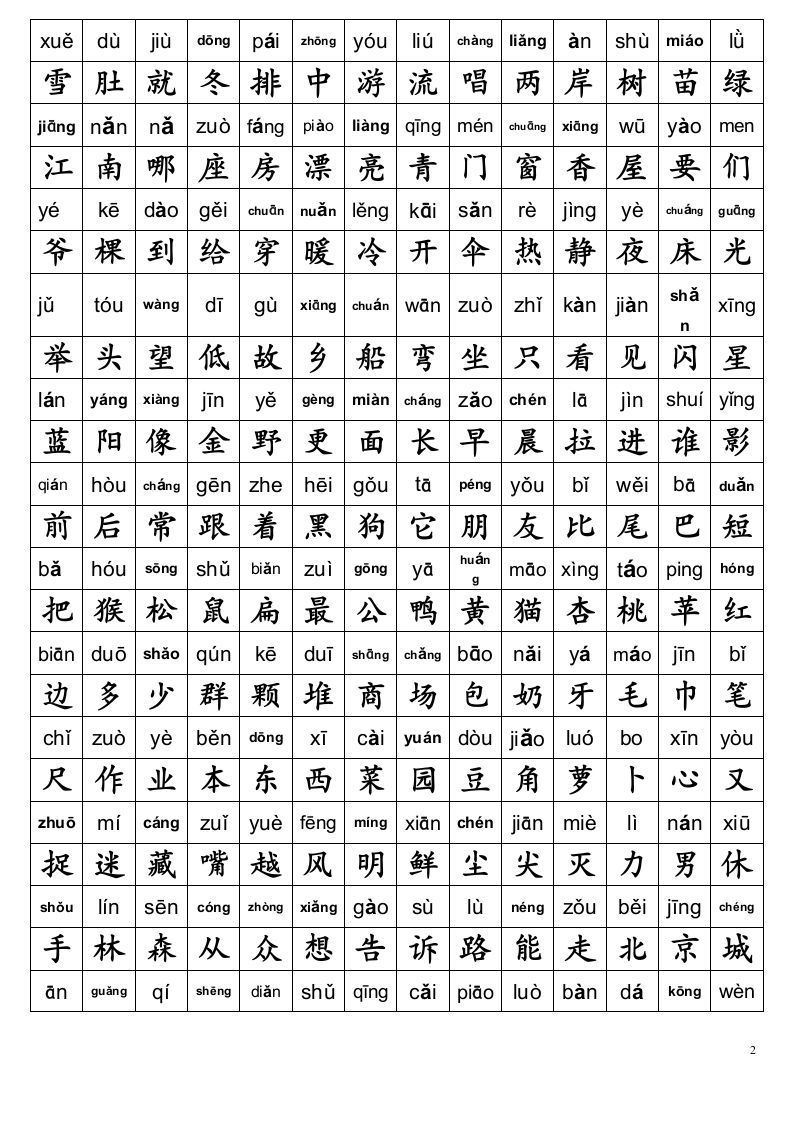 xuě dù jiù dōng pái zhōng yóu liú chàng liǎng àn shù miáo lǜ
雪 肚 就 冬 排 中 游 流 唱 两 岸 树 苗 绿
jiāng nǎn nǎ zuò fáng piào liàng qīng mén chuāng xiāng wū yào men
江 南 哪 座 房 漂 亮 青 门 窗 香 屋 要 们
yé kē dào gěi chuān nuǎn lěng kāi sǎn rè jìng yè chuáng guāng
爷 棵 到 给 穿 暖 冷 开 伞 热 静 夜 床 光
jǔ tóu wàng dī gù xiāng chuán wān zuò zhǐ kàn jiàn shǎn xīng
举 头 望 低 故 乡 船 弯 坐 只 看 见 闪 星
lán yáng xiàng jīn yě gèng miàn cháng zǎo chén lā jìn shuí yǐng
蓝 阳 像 金 野 更 面 长 早 晨 拉 进 谁 影
qián hòu cháng gēn zhe hēi gǒu tā péng yǒu bǐ wěi bā duǎn
前 后 常 跟 着 黑 狗 它 朋 友 比 尾 巴 短
bǎ hóu sōng shǔ biǎn zuì gōng yā huáng māo xìng táo ping hóng
把 猴 松 鼠 扁 最 公 鸭 黄 猫 杏 桃 苹 红
biān duō shǎo qún kē duī shāng chǎng bāo nǎi yá máo jīn bǐ
边 多 少 群 颗 堆 商 场 包 奶 牙 毛 巾 笔
chǐ zuò yè běn dōng xī cài yuán dòu jiǎo luó bo xīn yòu
尺 作 业 本 东 西 菜 园 豆 角 萝 卜 心 又
zhuō mí cáng zuǐ yuè fēng míng xiān chén jiān miè lì nán xiū
捉 迷 藏 嘴 越 风 明 鲜 尘 尖 灭 力 男 休
shǒu lín sēn cóng zhòng xiǎng gào sù lù néng zǒu běi jīng chéng
手 林 森 从 众 想 告 诉 路 能 走 北 京 城
ān guǎng qí shēng diǎn shǔ qīng cǎi piāo luò bàn dá kōng wèn
2